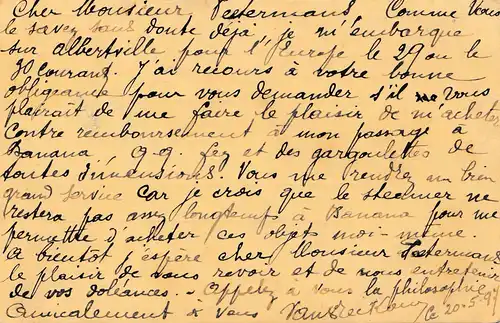 Cher Monsieur Peetermans, Comme vous
le savez sans doute déjà, je m'embarque
sur Albertville pour l'Europe le 29 ou le
30 courant. J'ai recours à votre bonne
obligeance pour vous demander s'il me vous
plairait de me faire le plaisir de m'acheter
contre remboursement à mon passage à
Banana, q.q. fez et des gargoulettes de
toutes dimensions. Vous me rendrez un bien
grand service car je crois que le steamer ne
restera pas assez longtemps à Banana pour me
permettre d'acheter ces objets moi-même.
A bientôt j'espère cher Monsieur Peetermans
le plaisir de vous revoir et de nous entretenir
de vos doléances. - Appelez à vous la philosophie
Amicalement à vous
le 20-5-9